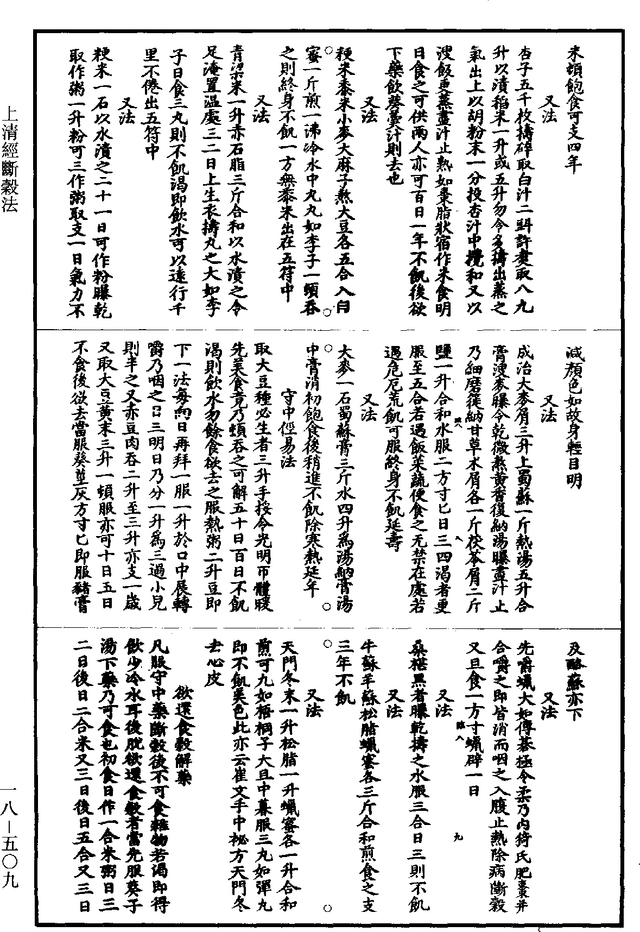 上清經斷穀法
一八—五〇九
米頓飽食可支四年
又法
杏子五千枚擣碎取白汁二㪷許煑取八九
升以漬稻米一升或五升勿令多擣出蒸之
氣出上以胡粉末一分投杏汁中攪和又以
溲飯更蒸畫汁止熟如棗脂狀宿作米食明
日食之可供兩人亦可百日一年不飢後欲
下藥飲葵薹汁則去也
又法
粳米黍米小麥大麻子熬大豆各五合入白
蜜一斤煎一沸冷水中丸丸如李子一頓吞
之則終身不飢一方無黍米出在五符中
又法
青粱米一升赤石脂三斤合和以水漬之令
足淹置温處三二日上生衣擣丸之大如李
子日食三丸則不飢渴即飲水可以遠行千
里不倦出五符中
又法
粳米一石以水漬之二十一日可作粉曝乾
取作粥一升粉可三作粥取支一日氣力不
減顏色如故身輕目明
又法
成治大麥屑三升上蜀蘇一斤熱湯五升合
膏溲麥曝令乾微熬黄香復納湯曝畫汁止
乃細磨篵納甘草末屑各一斤茯苓屑二斤
鹽一升合和水服二方寸匕日三四渴者更
服至五合若遇飯菜蔬便食之无禁在處若
遇危厄荒飢可服終身不飢延壽
又法
大麥一石蜀蘇膏三斤水四升爲湯納膏湯
中膏消初飽食後稍進不飢除寒熱延年
守中徑易法
取大豆種必生者三升手挼令光明帀體暖
先美食竟乃頓吞之可解五十日百日不飢
渴則飲水勿餘食欲去之服熱粥二升豆即
下一法每朔日再拜一服一升於口中展轉
嚼乃咽之日三明日乃分一升爲三過小兒
則半之又赤豆肉吞二升至三升亦支一歲
又取大豆黄末三升一頓服亦可十日五日
不食後欲去當服葵莖灰方寸匕即服豬膏
及酪蘇亦下
又法
先嚼蠟大如傅碁極令柔乃内猗氏肥棗并
合嚼之即皆消而咽之入腹止熱除病斷穀
又旦食一方寸蠟辟一日
又法
桑椹黑者曝乾擣之水服三合日三則不飢
又法
牛蘇羊蘇松脂蠟蜜各三斤合和煎食之支
三年不飢
又法
天門冬末一升松脂一升蠟蜜各一升合和
煎可丸如梧桐子大旦中暮服三丸如彈丸
即不飢美色此亦云崔文手中祕方天門冬
去心皮
欲還食穀解藥
凡服守中藥斷穀後不可食雜物若渴即得
飲少冷水耳後脱欲還食穀者當先服葵子
湯下藥乃可食也初食日作一合米粥日三
二日後日二合米又三日後日五合又三日